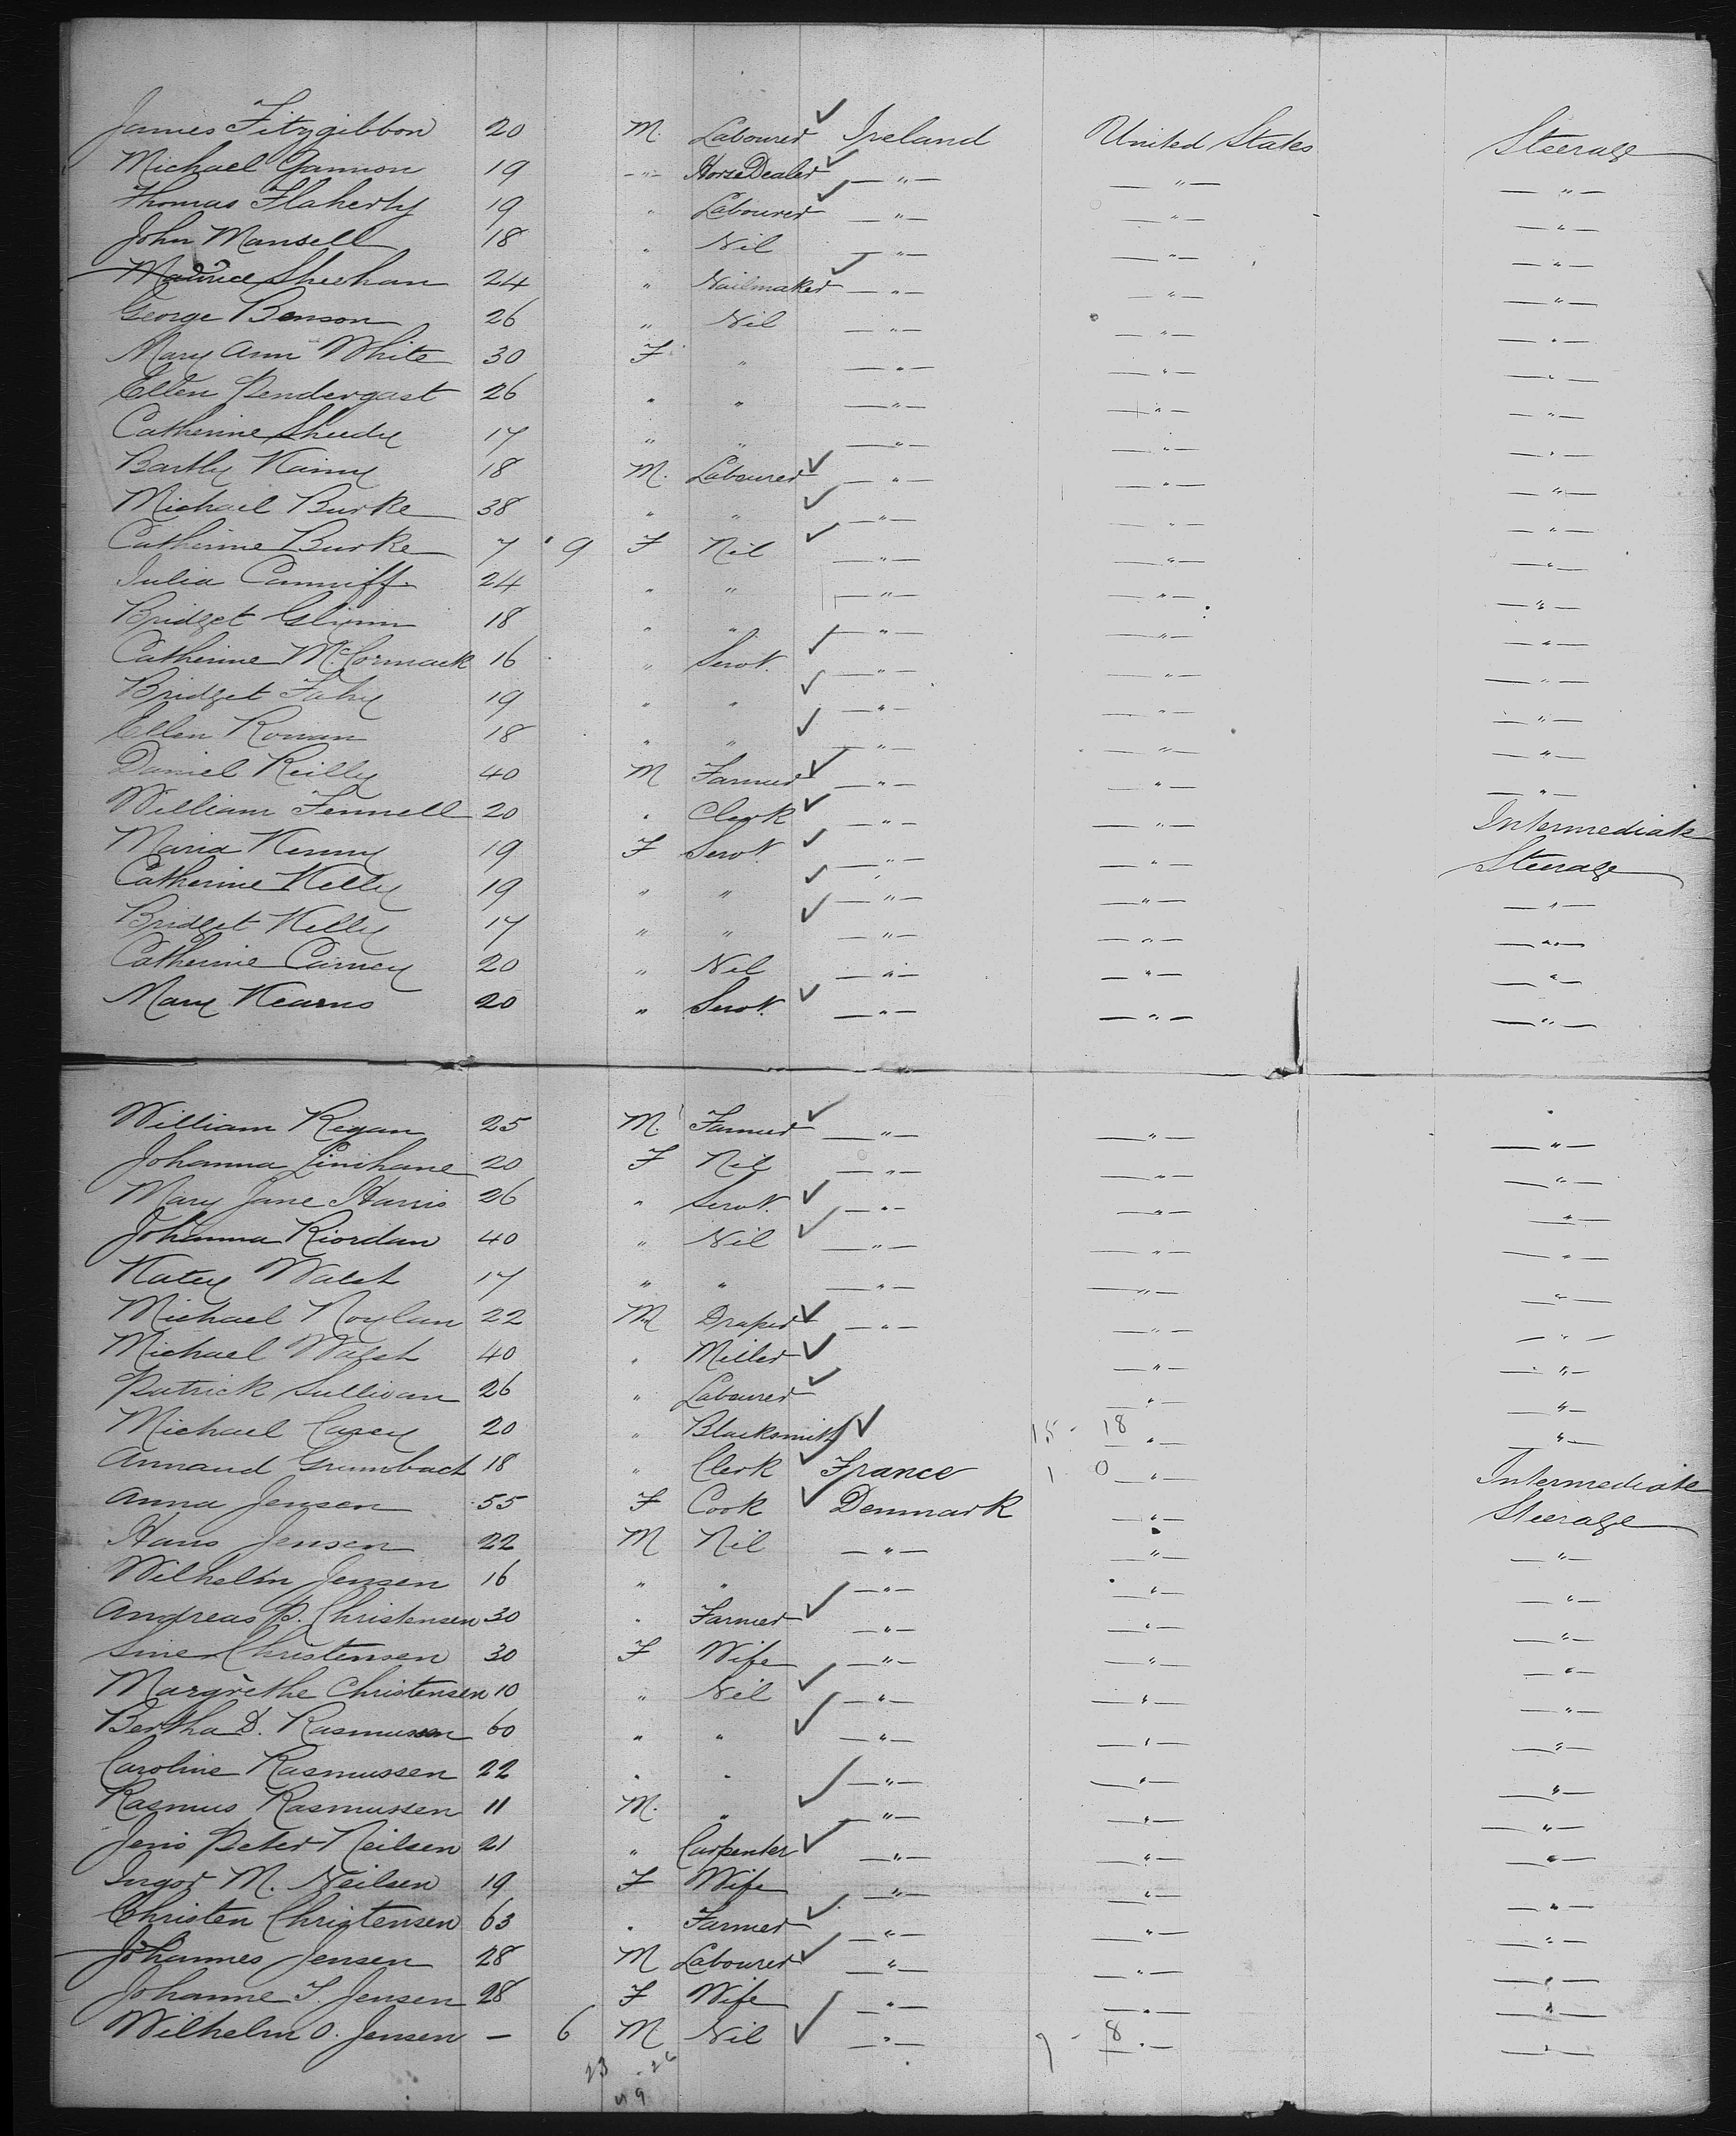 James Fitzgibbon 20 M. Labourer ✓ Ireland United States Steerage
Michael Gannon 19 —"— Horse Dealer ✓ —"— —"— —"—
Thomas Flaherty 19 " Labourer ✓ —"— —"— —"—
John Mansell 18 " Nil —"— —"— —"—
Maurice Sheehan 24 " Nailmaker ✓ —"— —"— —"—
George Benson 26 " Nil —"— —"— —"—
Mary Ann White 30 F " —"— —"— —"—
Ellen Pendergast 26 " " —"— —"— —"—
Catherine Sheedy 17 " " —"— —"— —"—
Bartly Nainy 18 M. Labourer ✓ —"— —"— —"—
Michael Burke 38 " " ✓ —"— —"— —"—
Catherine Burke 7 9 F Nil ✓ —"— —"— —"—
Julia Canniff 24 " " —"— —"— —"—
Bridget Glynn 18 " " —"— —"— —"—
Catherine McCormack 16 " Servt. ✓ —"— —"— —"—
Bridget Fahy 19 " " ✓ —"— —"— —"—
Ellen Ronan 18 " " ✓ —"— —"— —"—
Daniel Reilly 40 M Farmer ✓ —"— —"— —"—
William Fennell 20 " Clerk ✓ —"— —"— Intermediate
Maria Kenny 19 F Servt. ✓ —"— —"— Steerage
Catherine Kelly 19 " " ✓ —"— —"— —"—
Bridget Kelly 17 " " ✓ —"— —"— —"—
Catherine Carney 20 " Nil —"— —"— —"—
Mary Kearns 20 " Servt. ✓ —"— —"— —"—
William Regan 25 M. Farmer ✓ —"— —"— —"—
Johanna Linihane 20 F Nil —"— —"— —"—
Mary Jane Harris 26 " Servt. ✓ —"— —"— —"—
Johanna Riordan 40 " Nil ✓ —"— —"— —"—
Katey Walsh 17 " " —"— —"— —"—
Michael Noylan 22 M Draper ✓ —"— —"— —"—
Michael Walsh 40 " Miller ✓ —"— —"—
Patrick Sullivan 26 " Labourer ✓ —"— —"—
Michael Casey 20 " Blacksmith ✓ 15 - 18 —"— —"—
Armand Grumbach 18 " Clerk ✓ France 1 0 —"— Intermediate
Anna Jensen 55 F Cook ✓ Denmark —"— Steerage
Hans Jensen 22 M Nil —"— —"— —"—
Wilhelm Jensen 16 " " —"— —"— —"—
Andreas P. Christensen 30 " Farmer ✓ —"— —"— —"—
Sine Christensen 30 F Wife —"— —"— —"—
Margrethe Christensen 10 " Nil ✓ —"— —"— —"—
Bertha D. Rasmussen 60 " " ✓ —"— —"— —"—
Caroline Rasmussen 22 " " —"— —"— —"—
Rasmus Rasmussen 11 M. " ✓ —"— —"— —"—
Jens Peter Neilsen 21 " Carpenter ✓ —"— —"— —"—
Inger M. Neilsen 19 F Wife —"— —"— —"—
Christen Christensen 63 " Farmer ✓ —"— —"— —"—
Johannes Jensen 28 M Labourer ✓ —"— —"— —"—
Johanne F. Jensen 28 F Wife —"— —"— —"—
Wilhelm O. Jensen — 6 M Nil ✓ —"— 7 - 8 —"— —"—
23 - 26
49